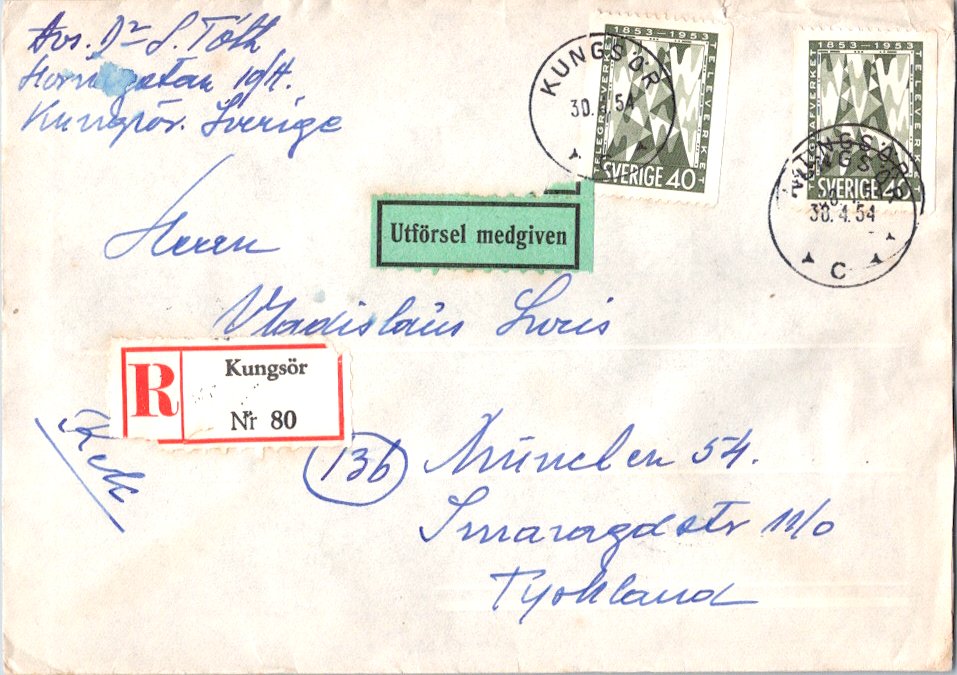 Avs. Dr L. Tóth
10/A.
Kungsör. Sverige
KUNGSÖR
30.4.54
1853-1953
TELEGRAFVERKET
TELEVERKET
SVERIGE 40
1853-1953
TELEVERKET
SVERIGE 40
KUNGSÖR
30.4.54
C
Utförsel medgiven
Herrn
Vladislaus
R
Kungsör
Nr 80
Rek
13b
München 54.
Smaragdstr 11/0
Tyskland